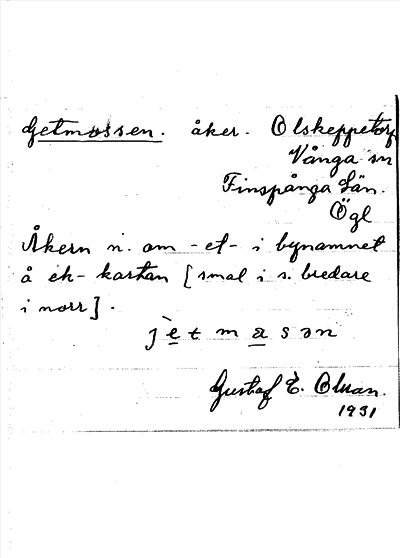 Getmossen. åker. Olskeppetorp
Vånga sn
Finspånga län.
Ögl
Åkern n. om -et- i bynamnet
å ek-kartan [smal i s. bredare
i norr].
jètmasən
Gustaf E.
1931